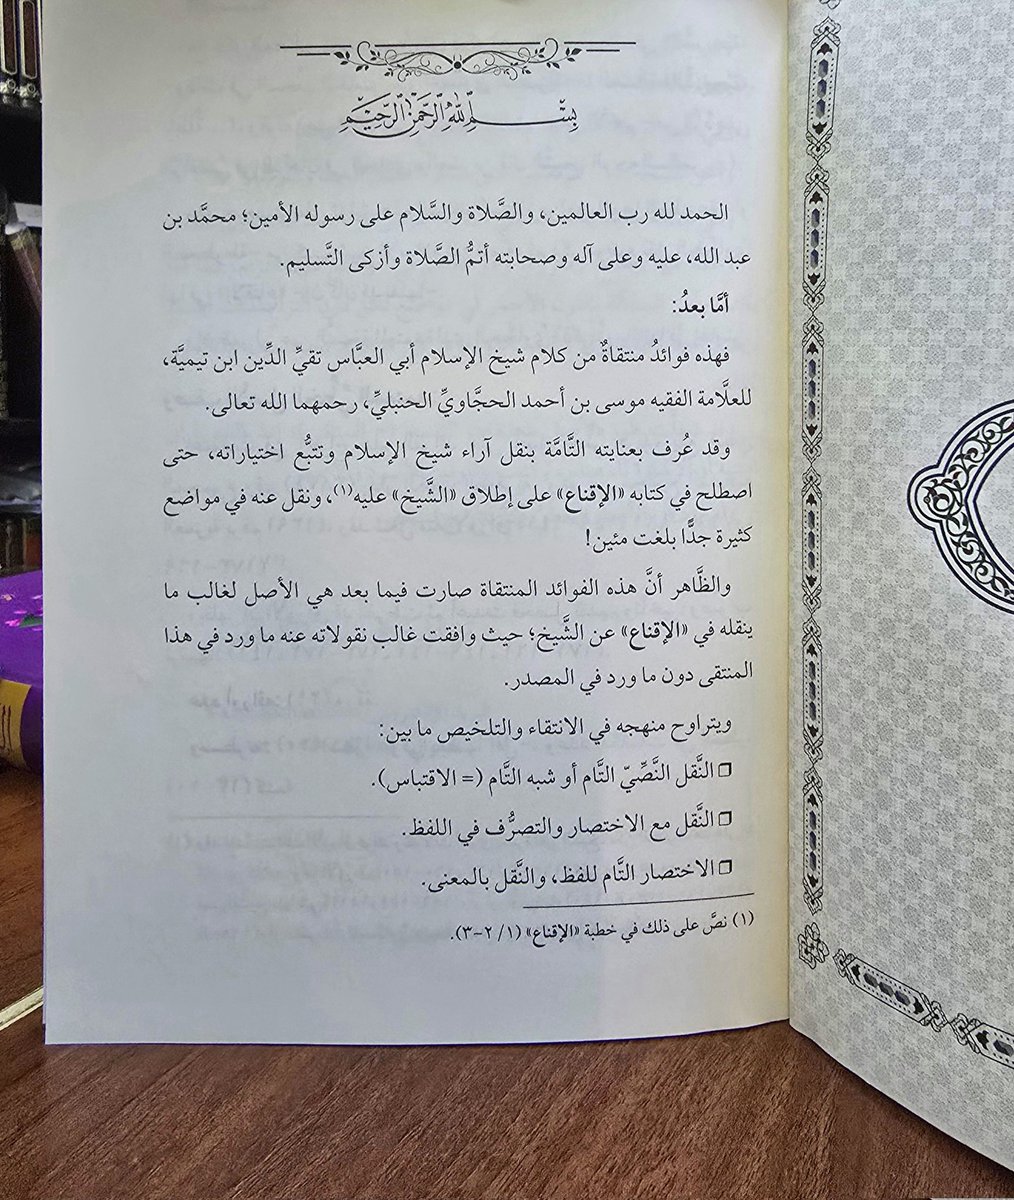 بِسْمِ اللَّهِ الرَّحْمَنِ الرَّحِيمِ
الحمد لله رب العالمين، والصَّلاة والسَّلام على رسوله الأمين؛ محمَّد بن
عبد الله، عليه وعلى آله وصحابته أتمُّ الصَّلاة وأزكى التَّسليم.
أمَّا بعدُ:
فهذه فوائدُ منتقاةٌ من كلام شيخ الإسلام أبي العبَّاس تقيِّ الدِّين ابن تيميَّة،
للعلَّامة الفقيه موسى بن أحمد الحجَّاويِّ الحنبليِّ، رحمهما الله تعالى.
وقد عُرف بعنايته التَّامَّة بنقل آراء شيخ الإسلام وتتبُّع اختياراته، حتى
اصطلح في كتابه «الإقناع» على إطلاق «الشَّيخ» عليه(١)، ونقل عنه في مواضع
كثيرة جدًّا بلغت مئين!
والظَّاهر أنَّ هذه الفوائد المنتقاة صارت فيما بعد هي الأصل لغالب ما
ينقله في «الإقناع» عن الشَّيخ؛ حيث وافقت غالب نقولاته عنه ما ورد في هذا
المنتقى دون ما ورد في المصدر.
ويتراوح منهجه في الانتقاء والتلخيص ما بين:
❒ النَّقل النَّصِّيّ التَّام أو شبه التَّام (= الاقتباس).
❒ النَّقل مع الاختصار والتصرُّف في اللفظ.
❒ الاختصار التَّام للفظ، والنَّقل بالمعنى.
(١) نصَّ على ذلك في خطبة «الإقناع» (١/ ٢-٣).